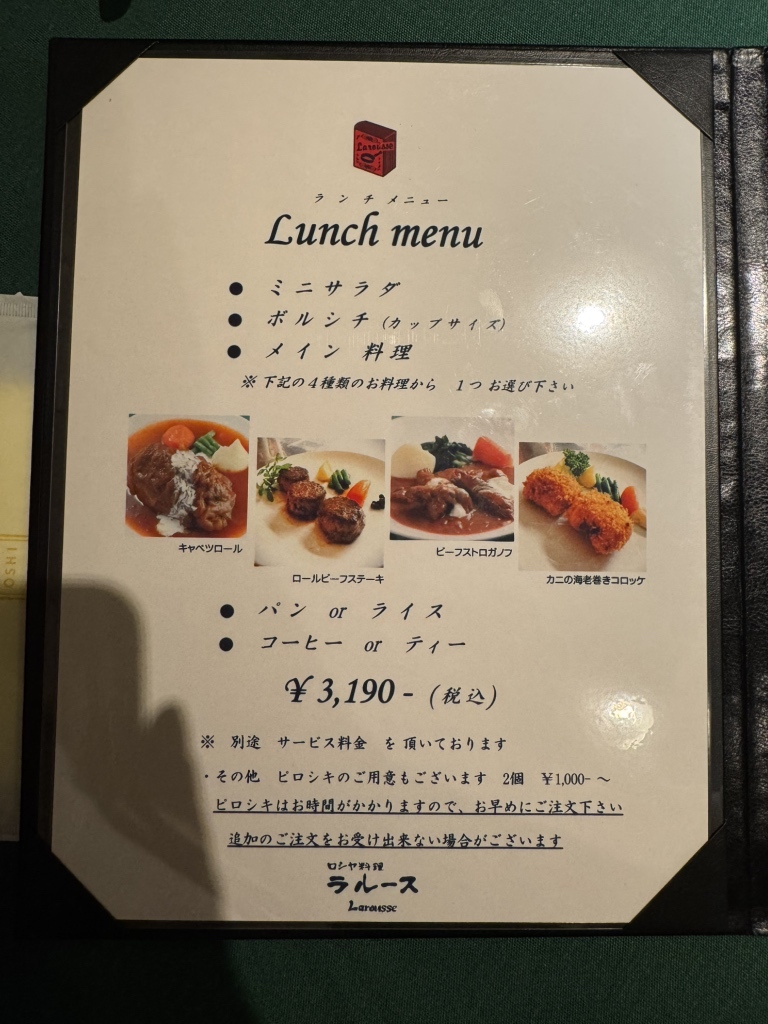 Larousse
ランチメニュー
Lunch menu
● ミニサラダ
● ボルシチ (カップサイズ)
● メイン 料理
※ 下記の4種類のお料理から 1つお選び下さい
キャベツロール
ロールビーフステーキ
ビーフストロガノフ
カニの海老巻きコロッケ
● パン or ライス
● コーヒー or ティー
¥ 3,190 - (税込)
※ 別途 サービス料金 を頂いております
・その他 ピロシキのご用意もございます 2個 ¥1,000- ～
ピロシキはお時間がかかりますので、お早めにご注文下さい
追加のご注文をお受け出来ない場合がございます
ロシヤ料理
ラルース
Larousse
OSHI